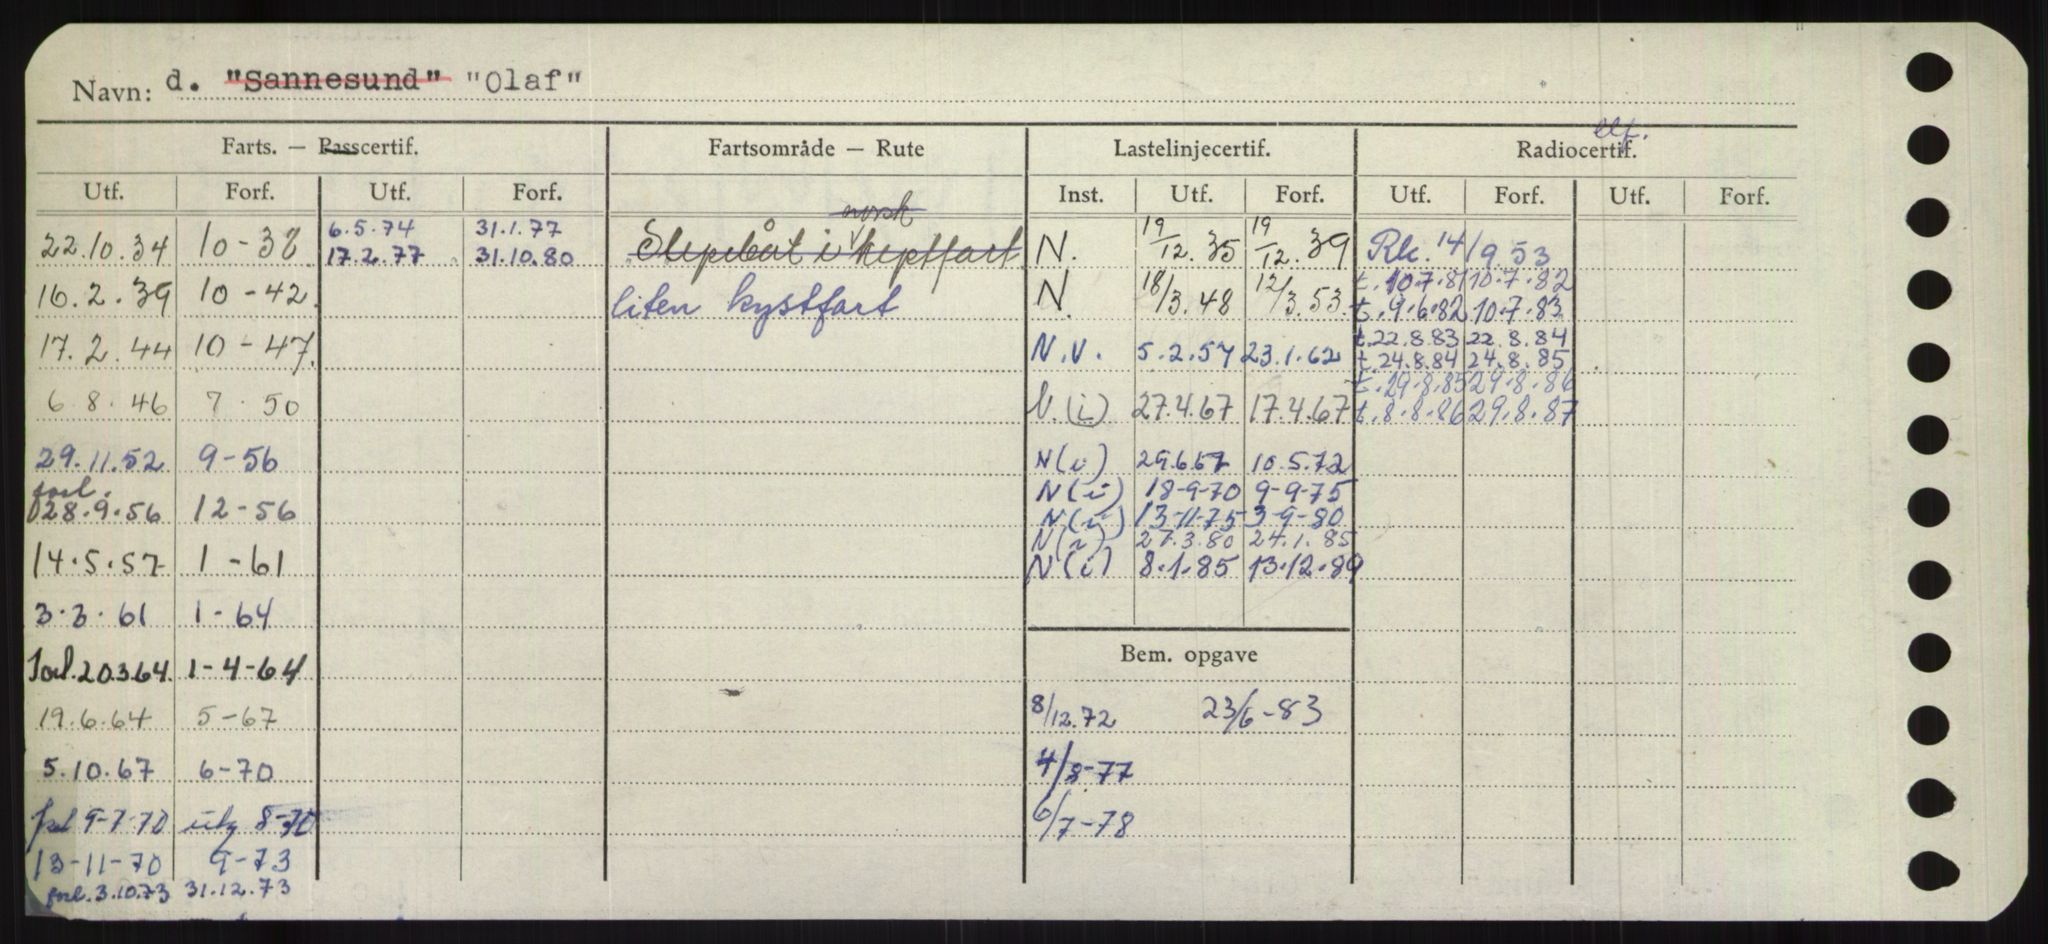 Navn: d. "Sannesund" "Olaf"
Farts. — Passcertif.
Utf. Forf. Utf. Forf.
22.10.34 10-38 6.5.74 31.1.77
17.2.77 31.10.80
16.2.39 10-42
17.2.44 10-47.
6.8.46 7.50
29.11.52 9-56
forl. 28.9.56 12-56
14.5.57 1-61
3.3.61 1-64
Forl. 20.3.64. 1-4-64
19.6.64 5-67
5.10.67 6-70
forl 9-7-70 utg 8-70
13-11-70 9-73
forl. 3.10.73 31.12.73
Fartsområde — Rute
norsk
Slepebåt i kystfart
liten kystfart
Lastelinjecertif.
Inst. Utf. Forf.
N. 19/12.35 19/12.39
N. 18/3.48 12/3.53
N.V. 5.2.57 23.1.62
N.(i) 27.4.67 17.4.67
N(i) 29.6.67 10.5.72
N(i) 18-9-70 9-9-75
N(i) 13-11-75 3-9-80
N(i) 27.3.80 24.1.85
N(i) 8.1.85 13.12.89
Bem. opgave
8/12.72 23/6-83
4/8-77
6/7-78
Radiocertif.
Utf. Forf. Utf. Forf.
Rk. 14/9 53
t. 10.7.81 10.7.82
t. 9.6.82 10.7.83
t. 22.8.83 22.8.84
t. 24.8.84 24.8.85
t. 29.8.85 29.8.86
t. 8.8.86 29.8.87